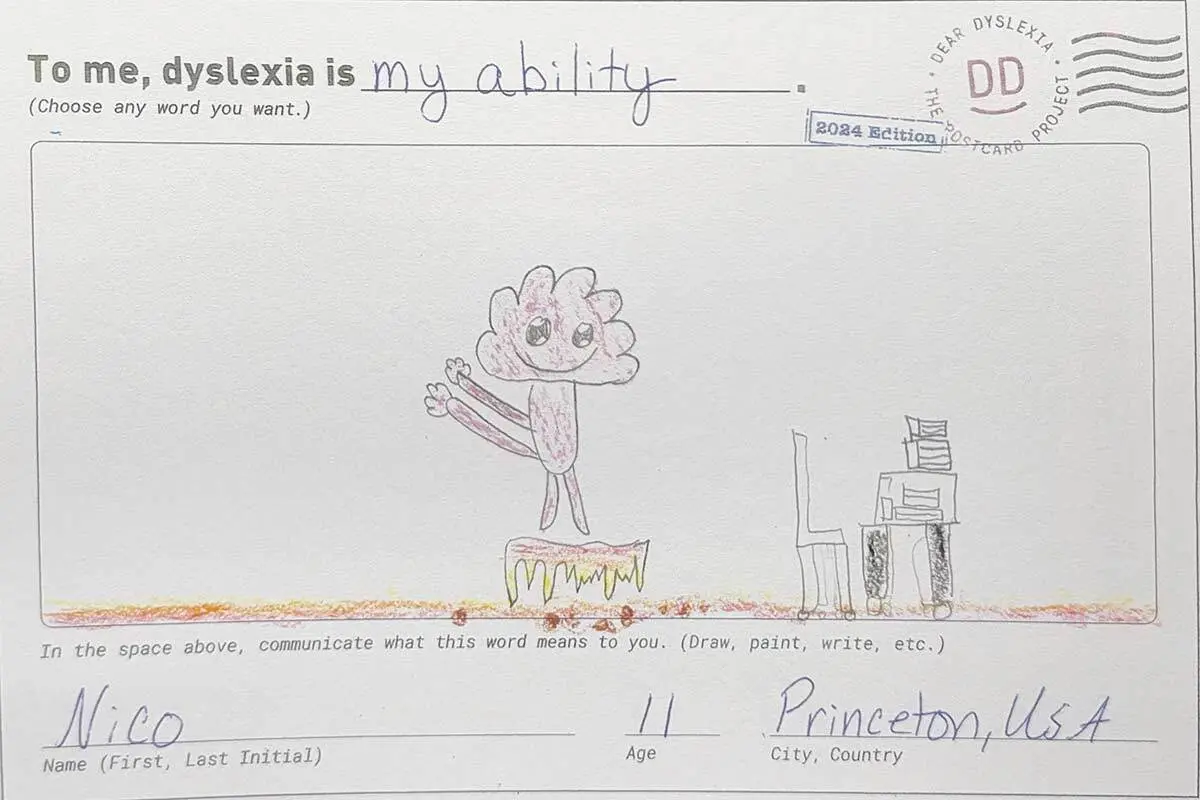 To me, dyslexia is my ability.
(Choose any word you want.)
• DEAR DYSLEXIA • THE POSTCARD PROJECT
DD
2024 Edition
In the space above, communicate what this word means to you. (Draw, paint, write, etc.)
Nico
11
Princeton, UsA
Name (First, Last Initial)
Age
City, Country